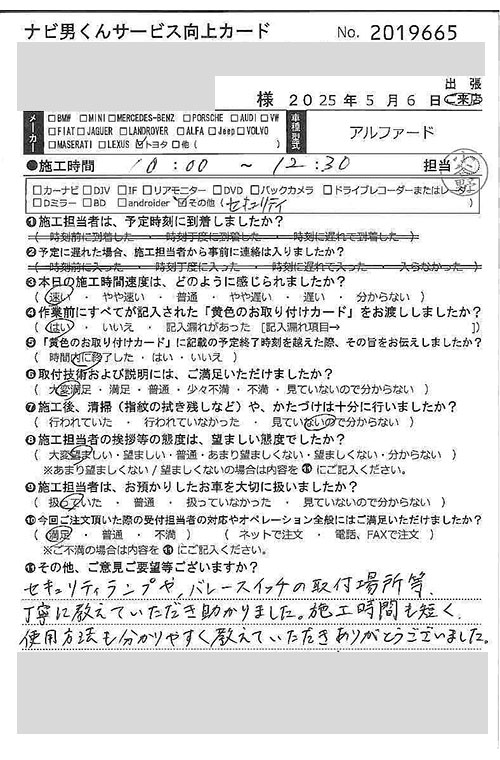 ナビ男くんサービス向上カード No. 2019665
出張
様 2025年5月6日 ご来店
メーカー □BMW □MINI □MERCEDES-BENZ □PORSCHE □AUDI □VW
□FIAT □JAGUER □LANDROVER □ALFA □Jeep □VOLVO
□MASERATI □LEXUS ☑トヨタ □他( )
車種型式 アルファード
●施工時間 10:00 ~ 12:30 担当
□カーナビ □DJV □IF □リアモニター □DVD □バックカメラ □ドライブレコーダーまたはレーダー
□Dミラー □BD □androider ☑その他(セキュリティ )
❶施工担当者は、予定時刻に到着しましたか?
( 時刻前に到着した ・ 時刻丁度に到着した ・ 時刻に遅れて到着した )
❷予定に遅れた場合、施工担当者から事前に連絡は入りましたか?
( 時刻前に入った ・ 時刻丁度に入った ・ 時刻に遅れて入った ・ 入らなかった )
❸本日の施工時間速度は、どのように感じられましたか?
( 速い ・ やや速い ・ 普通 ・ やや遅い ・ 遅い ・ 分からない )
❹作業前にすべてが記入された「黄色のお取り付けカード」をお渡ししましたか?
( はい ・ いいえ ・ 記入漏れがあった [記入漏れ項目→ ])
❺「黄色のお取り付けカード」に記載の予定終了時刻を越えた際、その旨をお伝えしましたか?
( 時間内に終了した ・ はい ・ いいえ )
❻取付技術および説明には、ご満足いただけましたか?
( 大変満足 ・ 満足 ・ 普通 ・ 少々不満 ・ 不満 ・ 見ていないので分からない )
❼施工後、清掃(指紋の拭き残しなど)や、かたづけは十分に行いましたか?
( 行われていた ・ 行われていなかった ・ 見ていないので分からない )
❽施工担当者の挨拶等の態度は、望ましい態度でしたか?
( 大変望ましい・望ましい・普通・あまり望ましくない・望ましくない・分からない )
※あまり望ましくない/望ましくないの場合は内容を⓫にご記入ください。
❾施工担当者は、お預かりしたお車を大切に扱いましたか?
( 扱っていた ・ 普通 ・ 扱っていなかった ・ 見ていないので分からない )
❿今回ご注文頂いた際の受付担当者の対応やオペレーション全般にはご満足いただけましたか?
( 満足 ・ 普通 ・ 不満 ) ( ネットで注文 ・ 電話、FAXで注文 )
※ご不満の場合は内容を⓫にご記入ください。
⓫その他、ご意見ご要望等ございますか?
セキュリティランプや、バレースイッチの取付場所等、
丁寧に教えていただき助かりました。施工時間も短く、
使用方法も分かりやすく教えていただきありがとうございました。